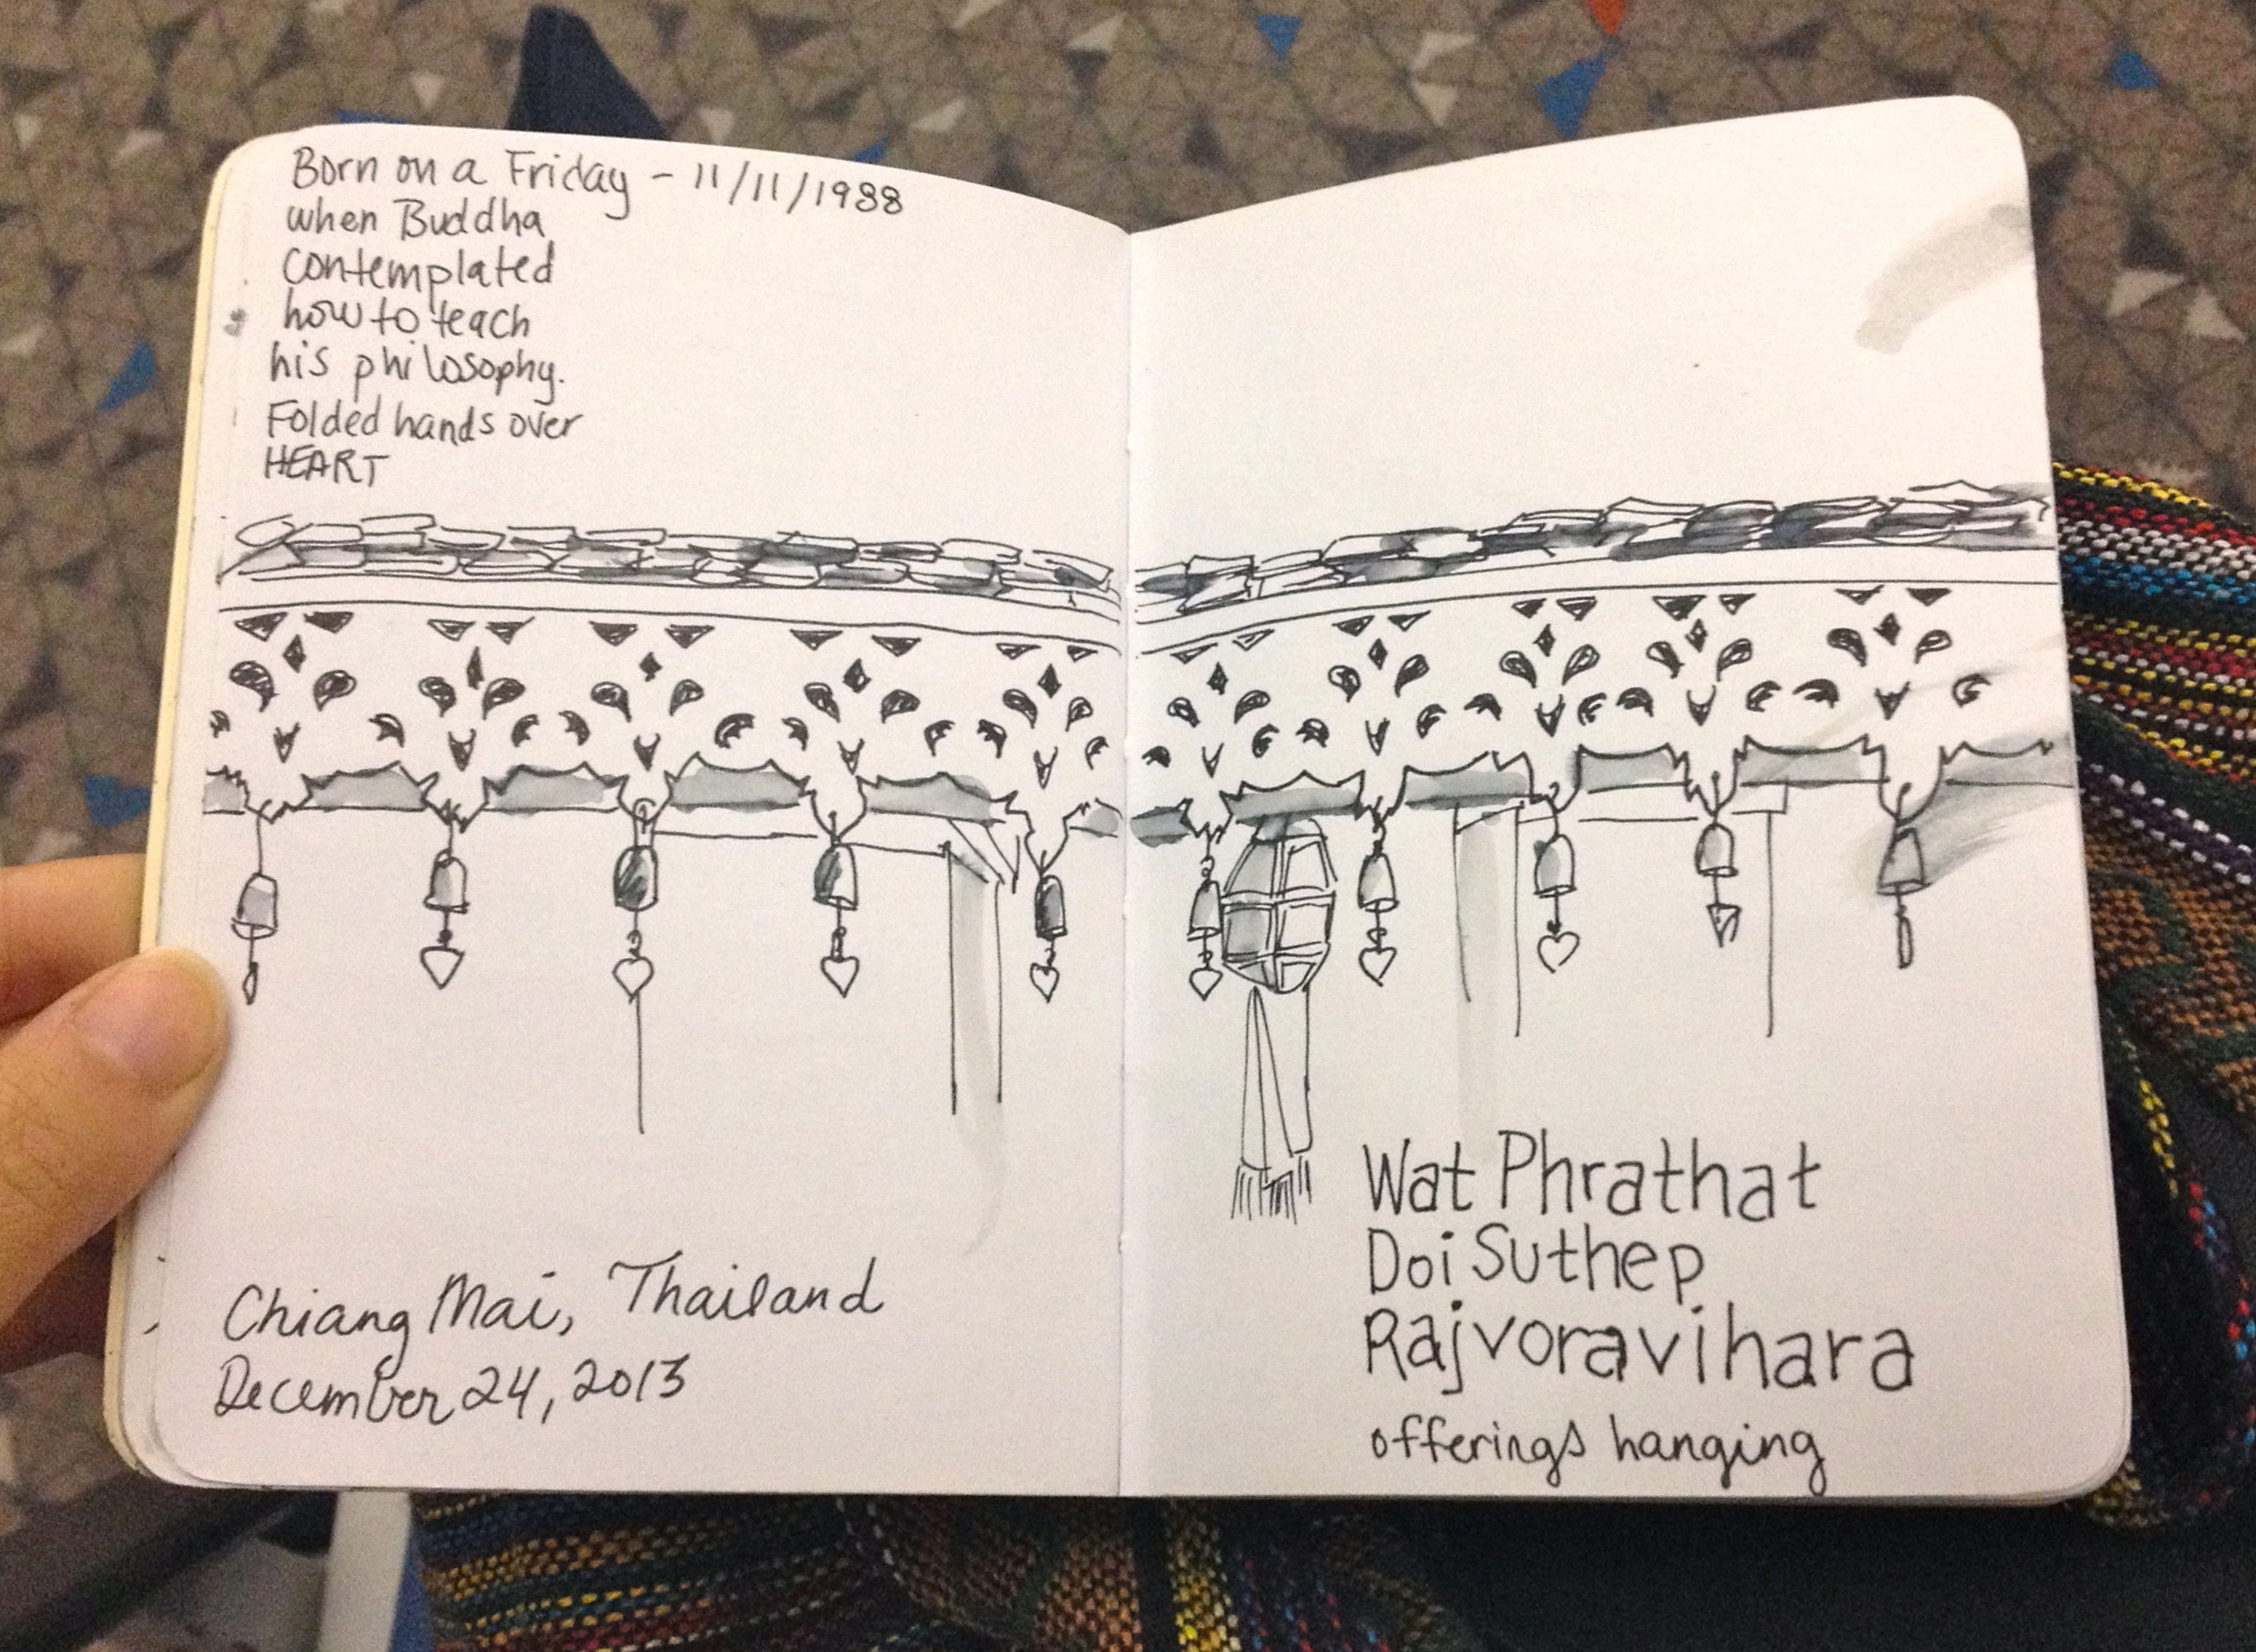 Born on a Friday - 11/11/1988
when Buddha
contemplated
how to teach
his philosophy.
Folded hands over
HEART
Chiang Mai, Thailand
December 24, 2013
Wat Phrathat
Doi Suthep
Rajvoravihara
offerings hanging